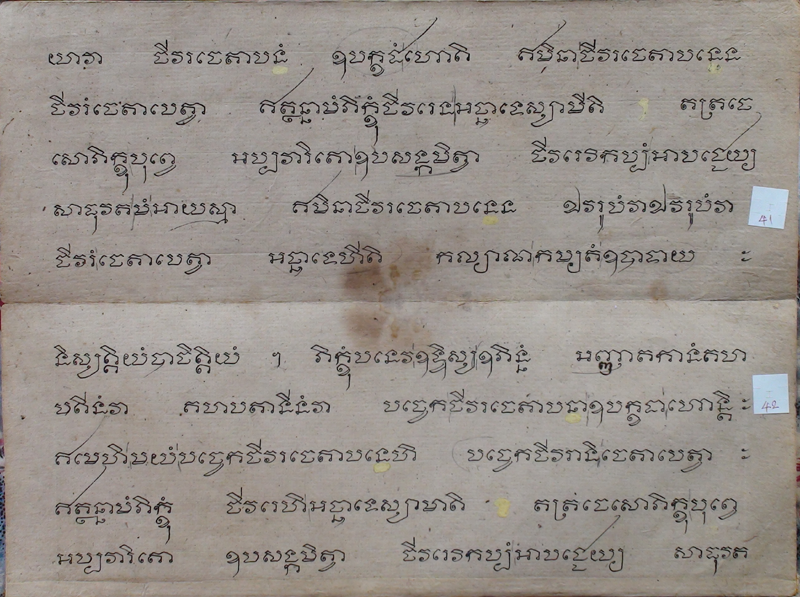 យាវា ជីវរចេតាបនំ ឧបក្ខដំហោតិ ឥមិនាជីវរចេតាបនេន
ចីវរំចេតាបេត្វា ឥត្ថន្នាមំភិក្ខុំចីវរេនអច្ឆាទេស្សាមីតិ តត្រចេ
សោភិក្ខុបុព្វេ អប្បវារិតោឧបសង្កមិត្វា ចីវរេវិកប្បំអាបជ្ជេយ្យ
សាធុវតមំអាយស្មា ឥមិនាចីវរចេតាបនេន ឯវរូបំវាឯវរូបំវា
ចីវរំចេតាបេត្វា អច្ឆាទេហីតិ កល្យាណកម្យតំឧបាទាយ ៈ
និស្សគ្គិយំបាចិត្តិយំ ៗ ភិក្ខុំបនេវឧទ្ទិស្សឧភិន្នំ អញ្ញាតកានំគហ
បតីនំវា គហបតានីនំវា បច្ចេកចីវរចេតាបនាឧបក្ខដាហោន្តិ ៈ
ឥមេហិមយំបច្ចេកចីវរចេតាបនេហិ បច្ចេកចីវរានិចេតាបេត្វា ៈ
ឥត្ថន្នាមំភិក្ខុំ ចីវរេហិអច្ឆាទេស្សាមាតិ តត្រចេសោភិក្ខុបុព្វេ
អប្បវារិតោ ឧបសង្កមិត្វា ចីវរេវិកប្បំអាបជ្ជេយ្យ សាធុវត
41
42